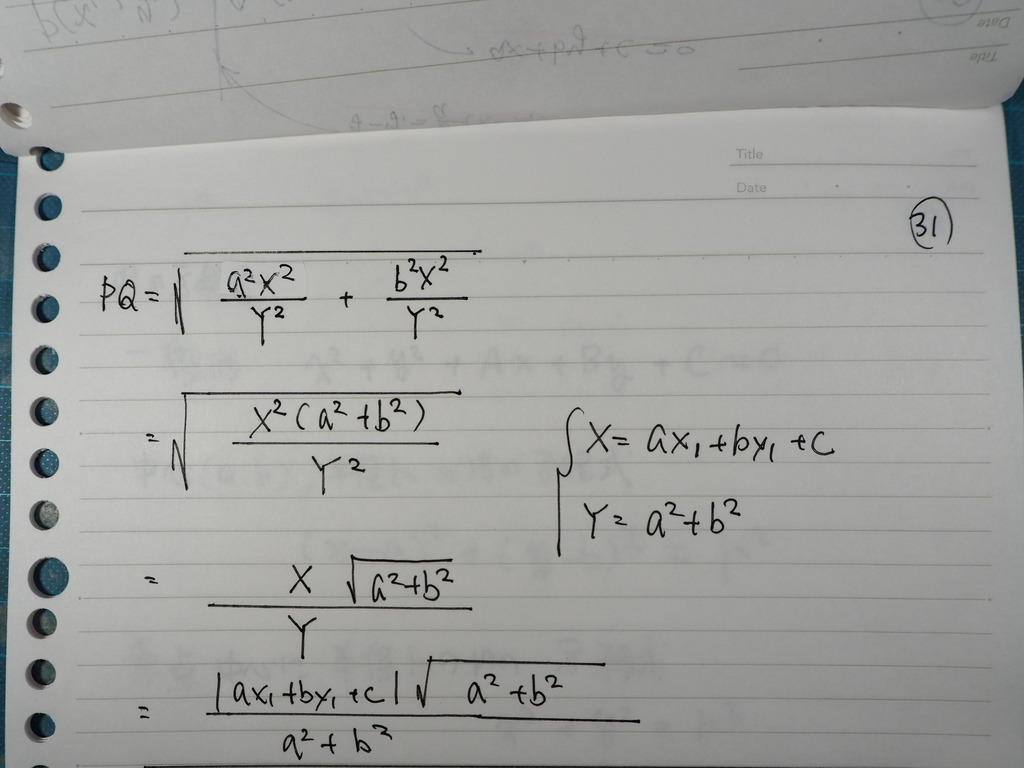 Title
Date
31
PQ = √(a²X²/Y² + b²X²/Y²)
= √(X²(a²+b²)/Y²)
X = ax₁+by₁+c
Y = a²+b²
= X √(a²+b²) / Y
= |ax₁+by₁+c| √(a²+b²) / a²+b²